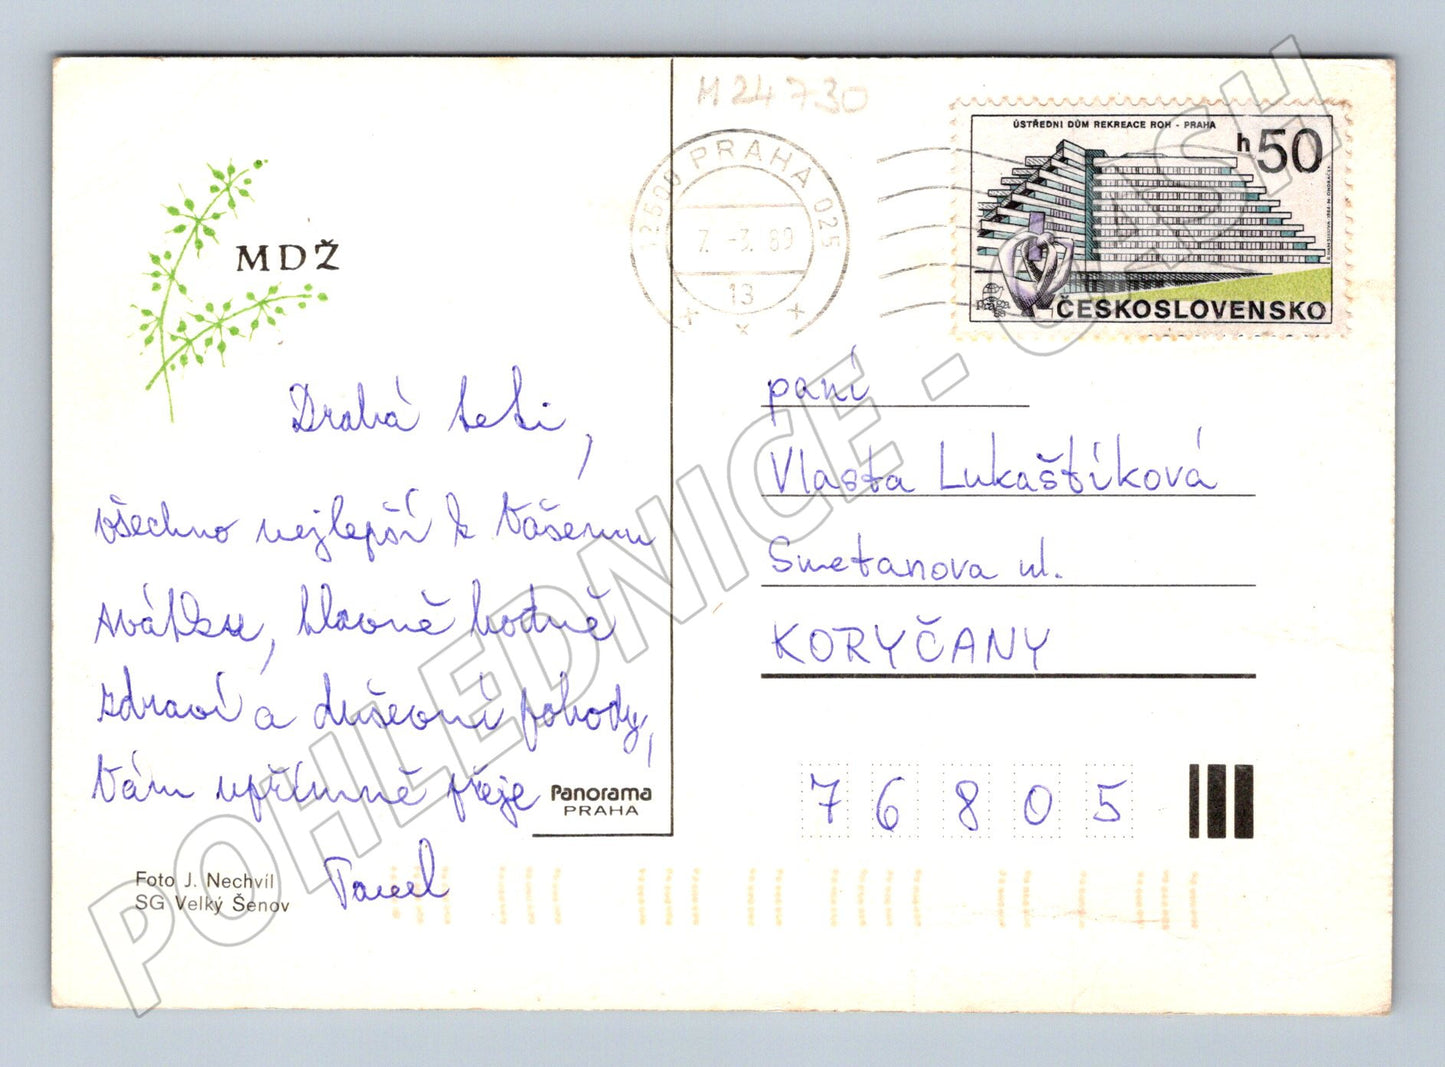 M 24730
12500 PRAHA 025
7. -3. 89
13
ÚSTŘEDNÍ DŮM REKREACE ROH - PRAHA
h50
praga
ČESKOSLOVENSKO
MDŽ
Drahá teti,
všechno nejlepší k Vašemu
svátku, hlavně hodně
zdraví a duševní pohody,
Vám upřímně přeje
Pavel
Panorama
PRAHA
Foto J. Nechvíl
SG Velký Šenov
paní
Vlasta Lukaštíková
Smetanova ul.
KORYČANY
76805
POHLEDNICE - CASH